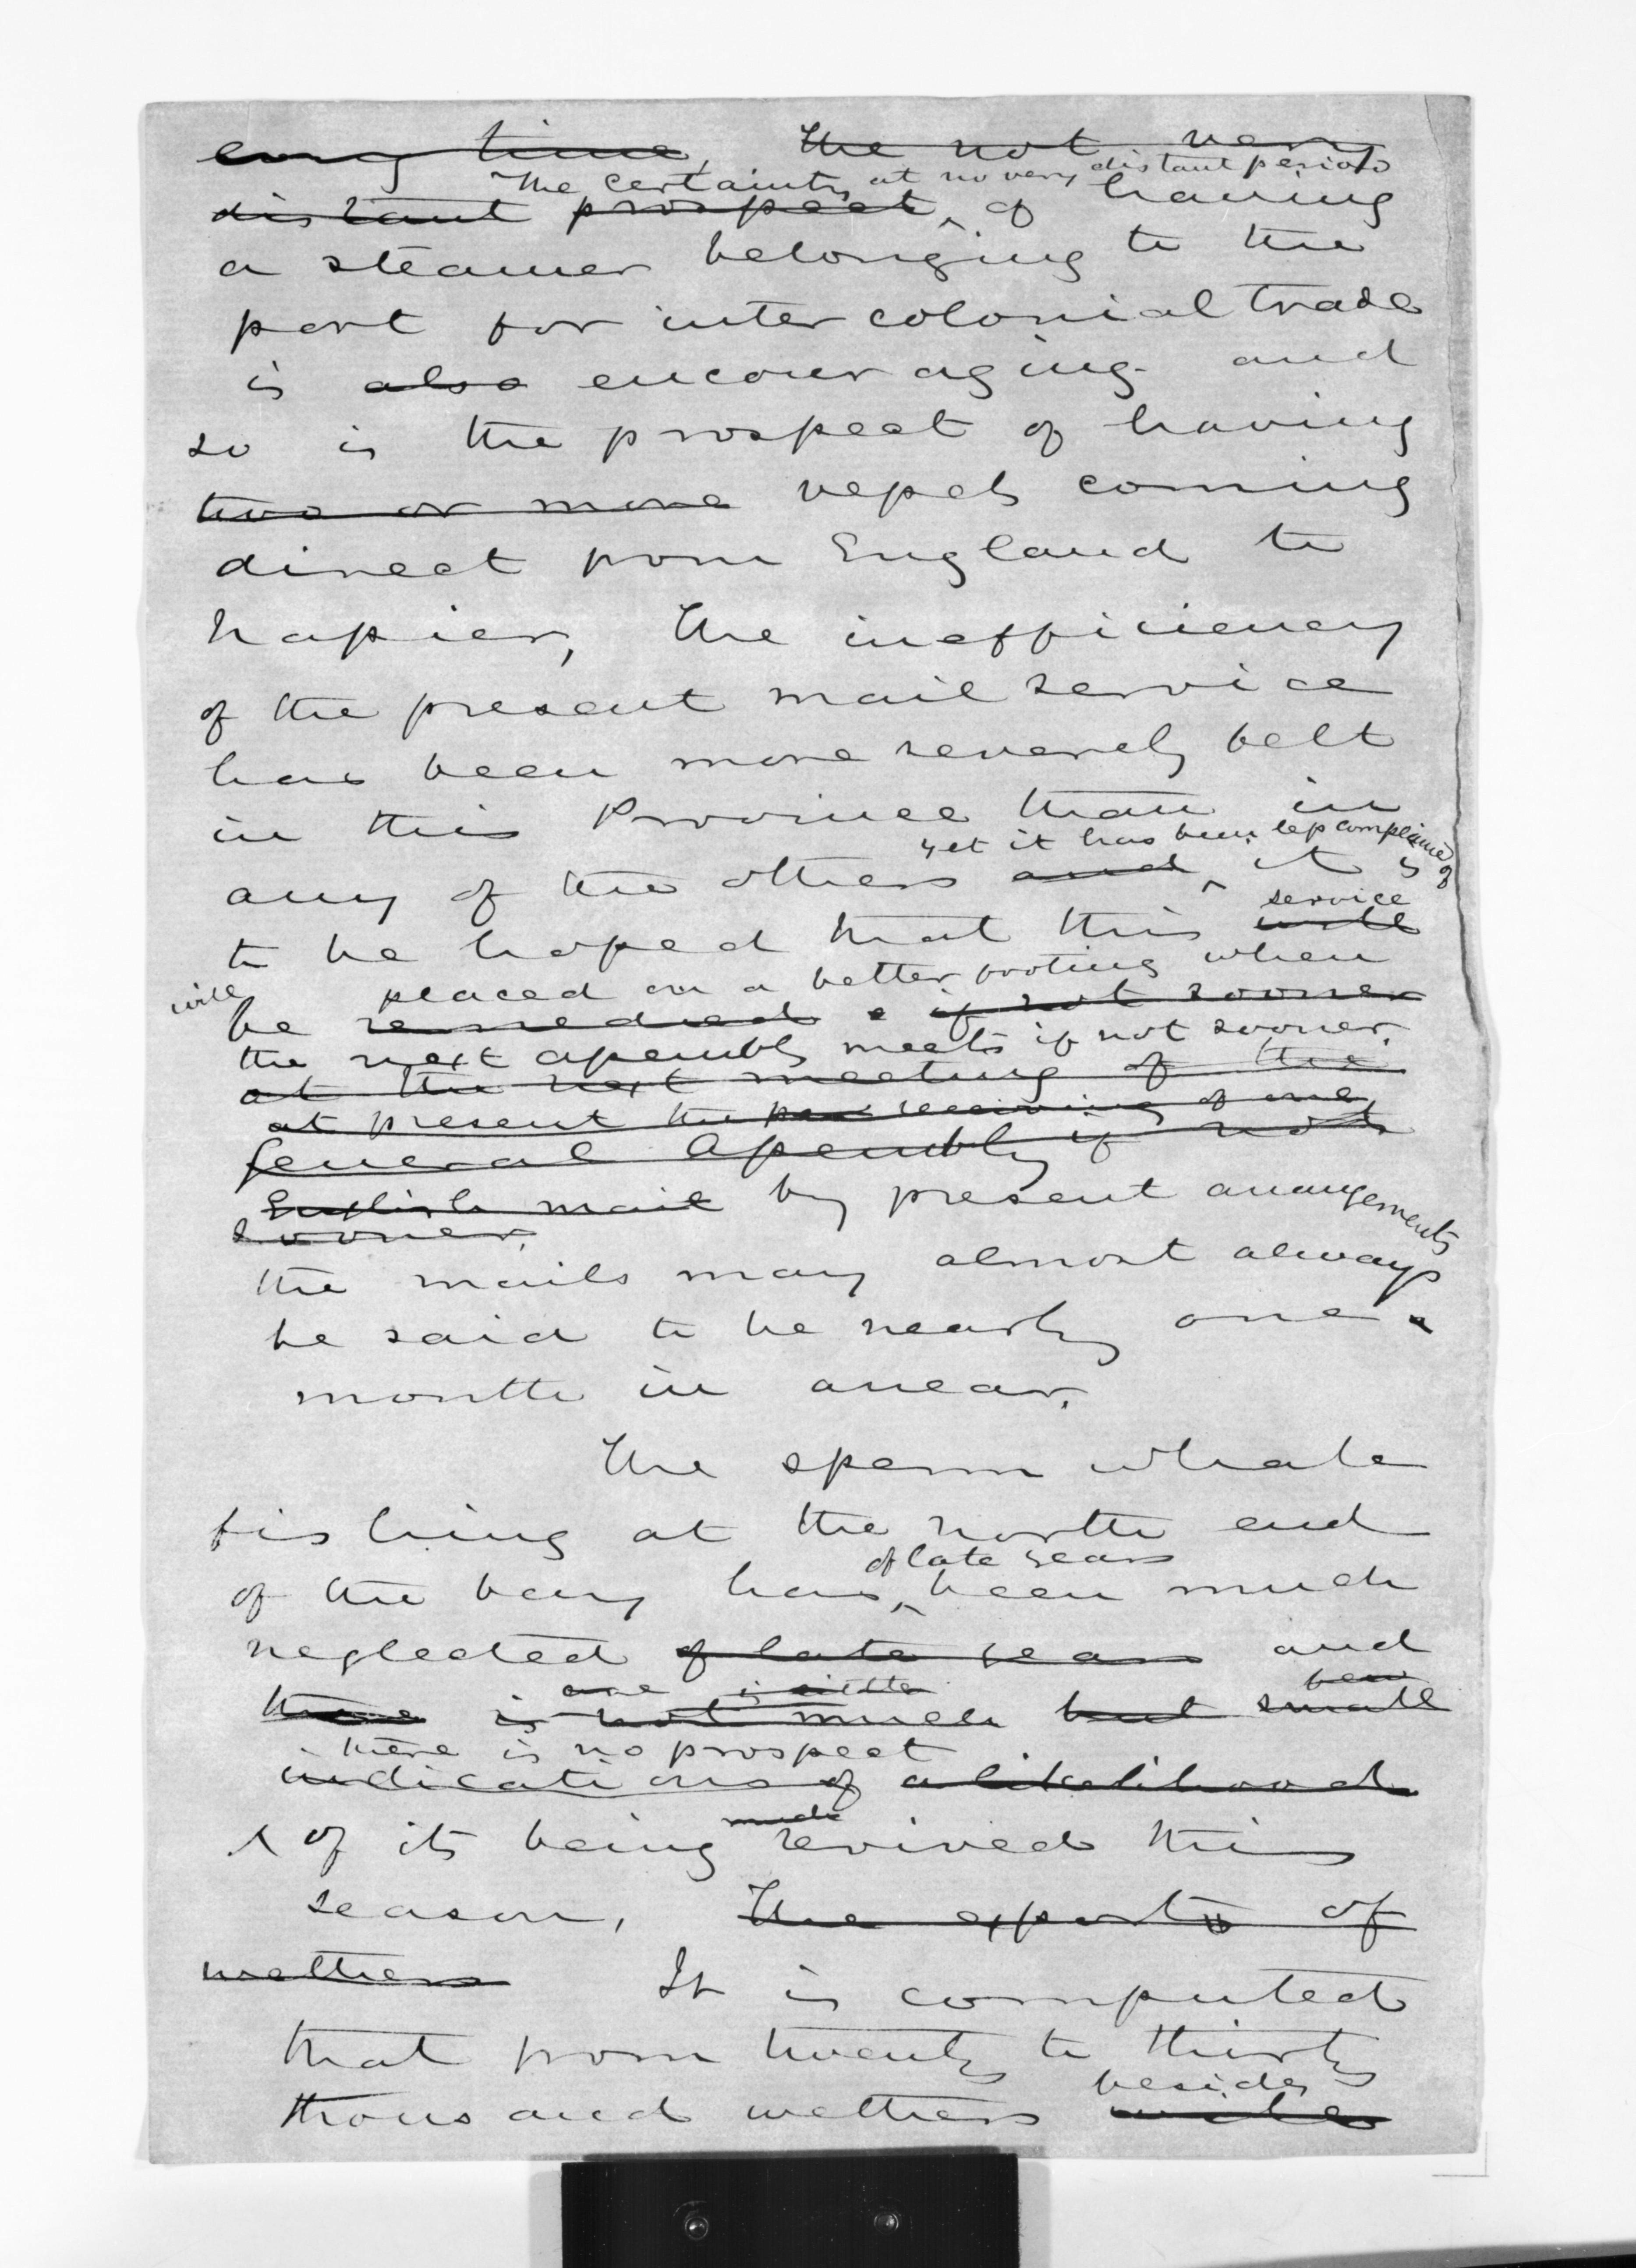 long time, The not very
The certainty at no very distant period
distant prospect of having
a steamer belonging to the
port for inter colonial trade
is also encouraging and
so is the prospect of having
two or more vessels coming
direct from England to
Napier, The inefficiency
of the present mail service
has been more severely felt
in this Province than in
yet it has been less complained of
any of the others and it is
service
to be hoped that this will
will placed on a better footing when
be remedied if not sooner
the next assembly meets if not sooner.
at the next meeting of the
at present the receiving of one
General Assembly if not
English mail by present arrangements
sooner.
the mails may almost always
be said to be nearly one
month in arrear.
The sperm whale
fishing at the north end
of late years
of the bay has been much
neglected of late years and
there is not much but small
there is no prospect
indications of a likelihood
much
of its being revived this
season, The exports of
wethers It is computed
that from twenty to thirty
besides
thousand wethers